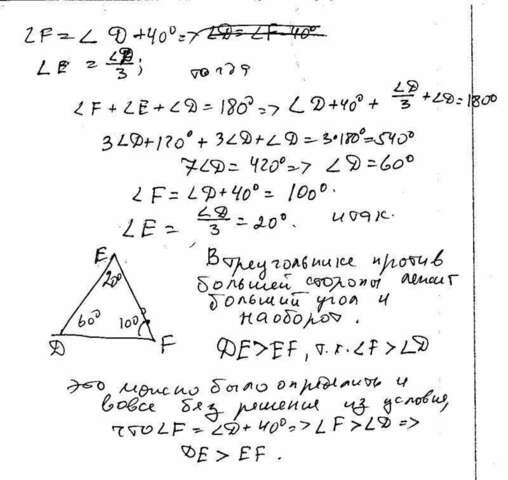 ∠F = ∠D + 40° => ∠D = ∠F - 40°
∠E = ∠D/3; тогда
∠F + ∠E + ∠D = 180° => ∠D + 40° + ∠D/3 + ∠D = 180°
3∠D + 120° + 3∠D + ∠D = 3·180° = 540°
7∠D = 420° => ∠D = 60°
∠F = ∠D + 40° = 100°.
∠E = ∠D/3 = 20°. итак.
E
20°
60°
100°
D
F
В треугольнике против
большей стороны лежит
больший угол и
наоборот.
DE > EF, т.к. ∠F > ∠D
это можно было определить и
вовсе без решения из условия,
что ∠F = ∠D + 40° => ∠F > ∠D =>
DE > EF.